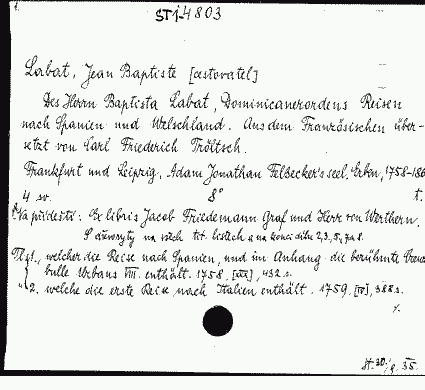 1.
ST i-4803
Labat, Jean Baptiste [cestovatel]
Des Herrn Baptista Labat, Dominicanerordens Reisen
nach Spanien und Welschland. Aus dem Französischen über-
setzt von Carl Friederich Tröltsch.
Frankfurt und Leipzig, Adam Jonathan Felbecker's seel. Erben, 1758-
4 sv. 8° t.
Na přídeští: Ex libris Jacob Friedemann Graf und Herr von Werthern.
S dřevoryty na všech tit. listech a na konci dílu 2, 3, 5, 7 a 8.
welcher die Reise nach Spanien, und im Anhang die berühmte
bulle Urbans VIII. enthält. 1758. 432 s.
" 2. welche die erste Reise nach Italien enthält. 1759. [IV], 388 s.